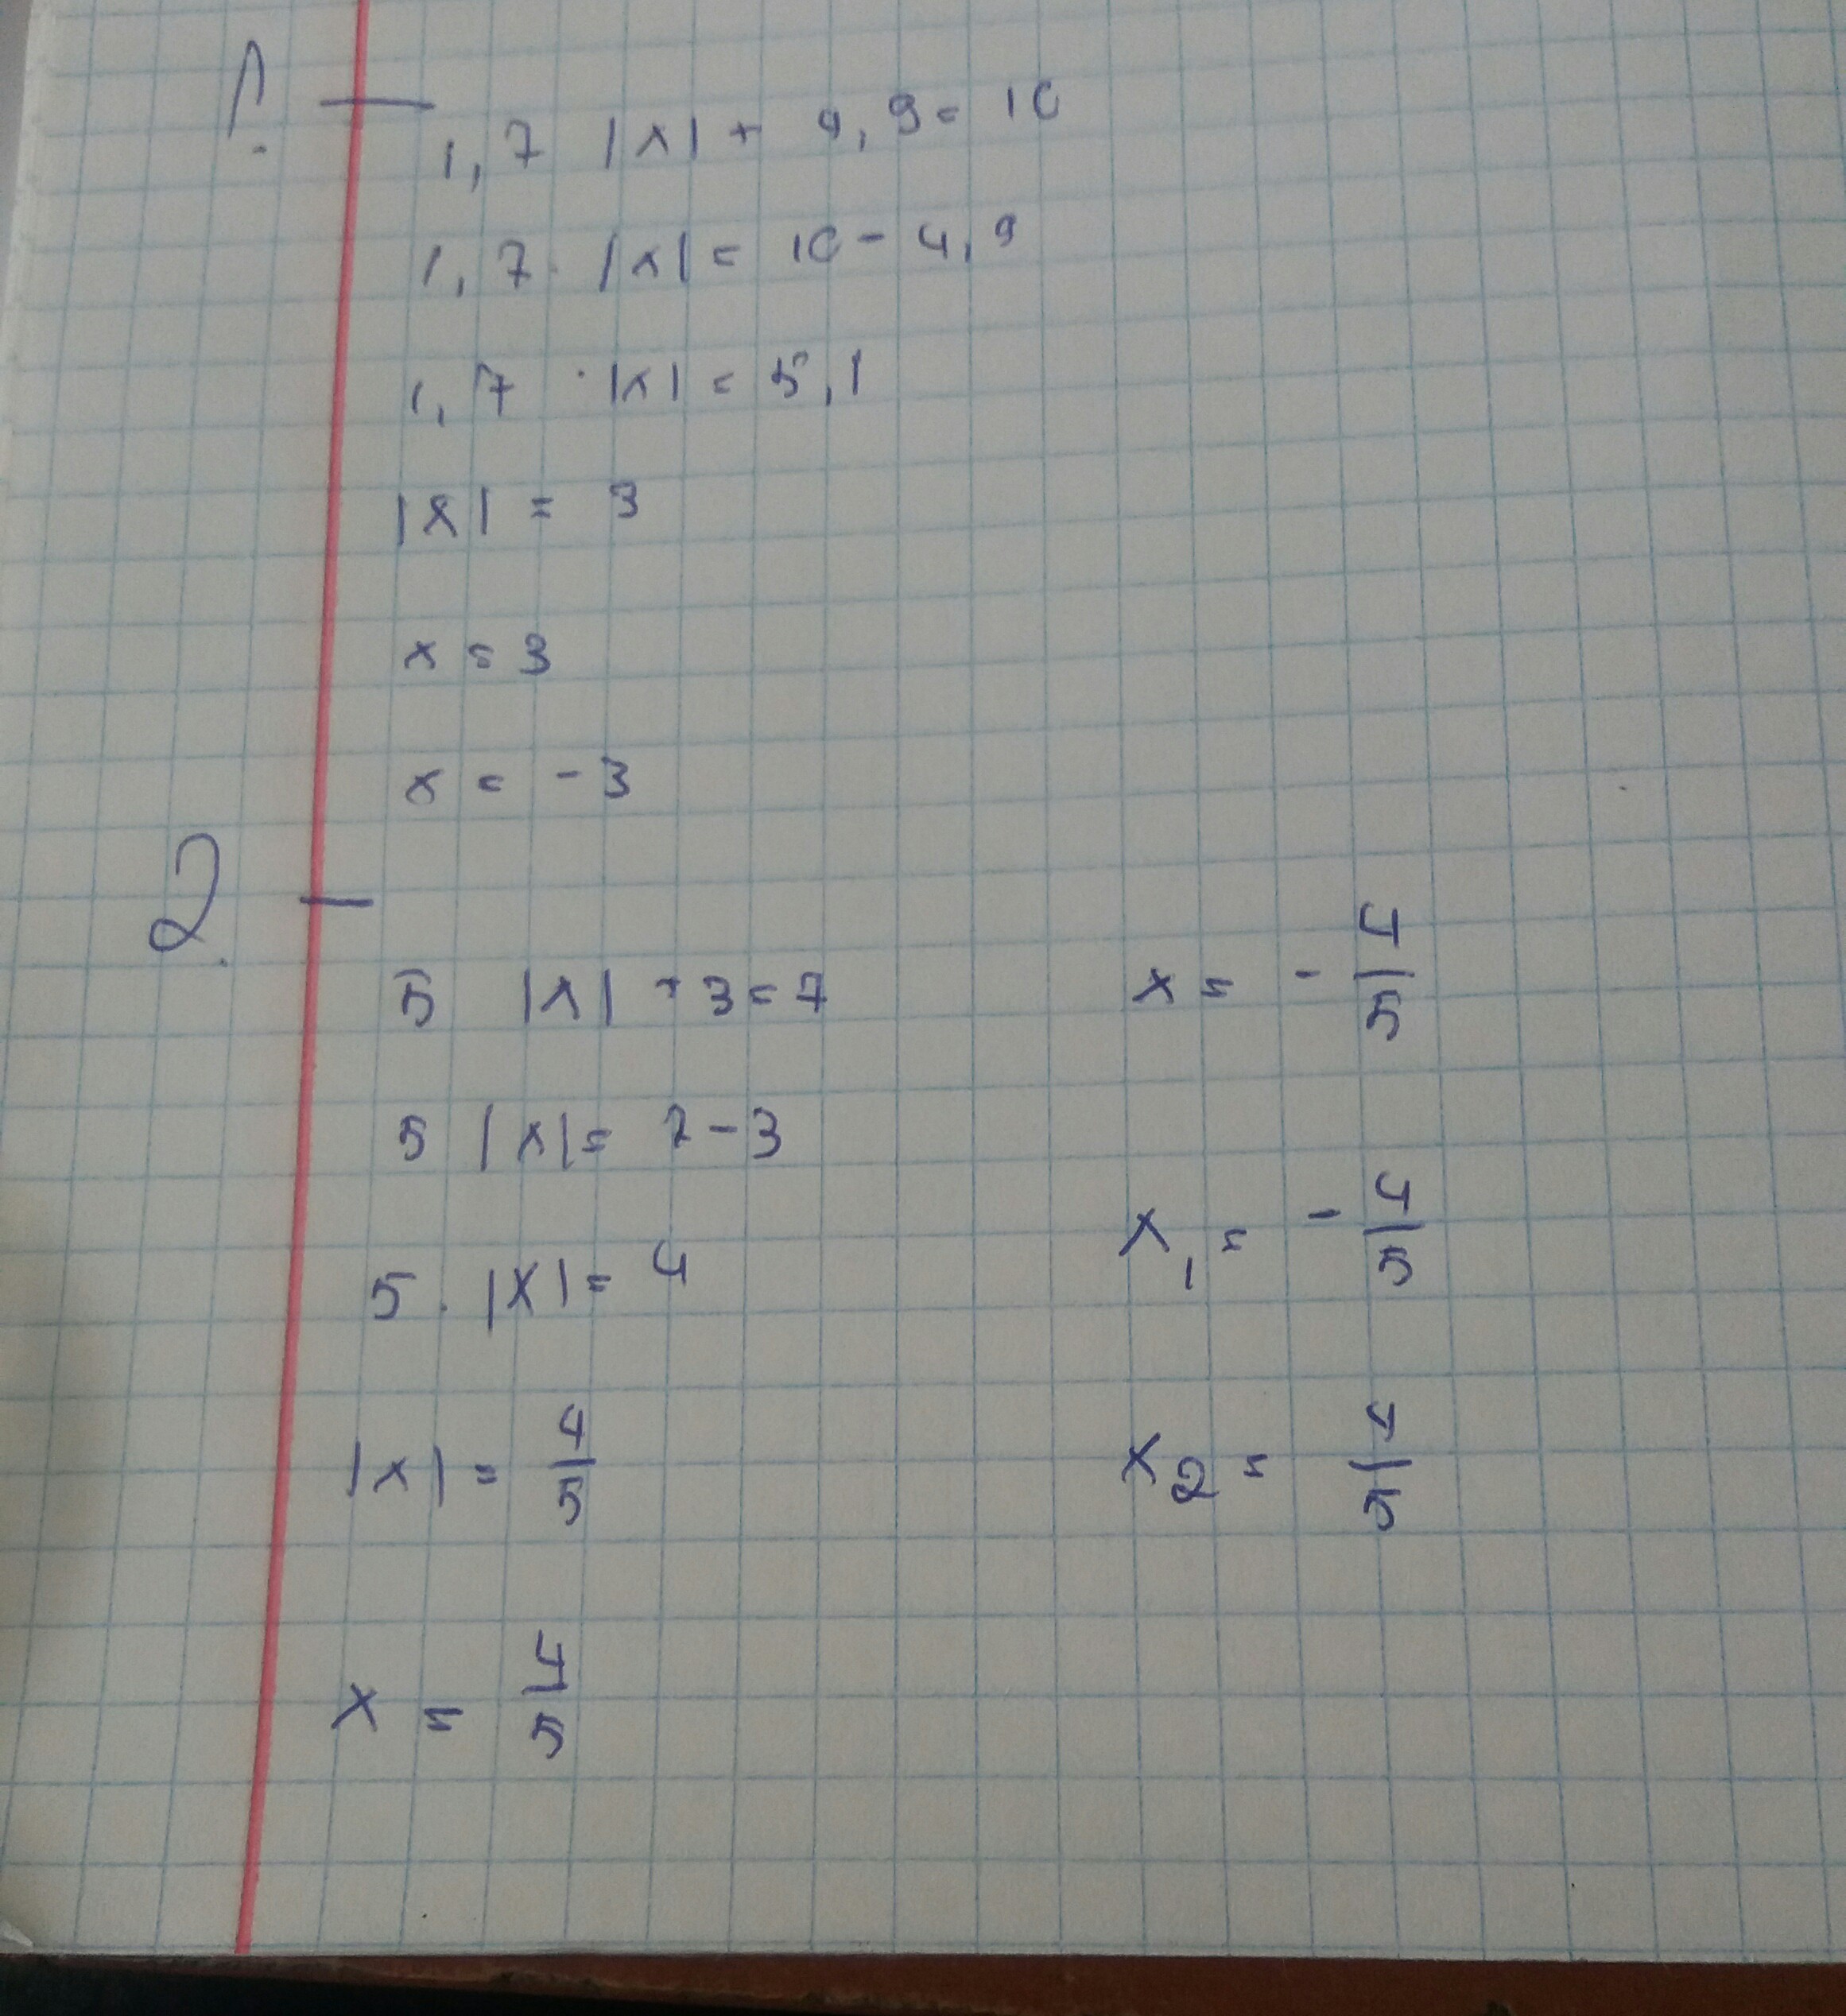 1. —
1,7 |x| + 9,9 = 10
1,7 · |x| = 10 - 4,9
1,7 · |x| = 5,1
|x| = 3
x = 3
x = -3
2. —
5 |x| + 3 = 7
5 |x| = 7 - 3
5 · |x| = 4
|x| = 4/5
x = 4/5
x = - 4/5
x₁ = - 4/5
x₂ = 4/5